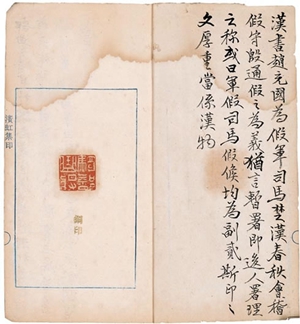 漢書趙充國為假軍司馬楚漢春秋會稽
假守殷通假之為義猶言暫署即遴人署理
之称或曰軍假司馬假候均為副貳斯印之
文厚重當係漢物
濱虹集印
銅印